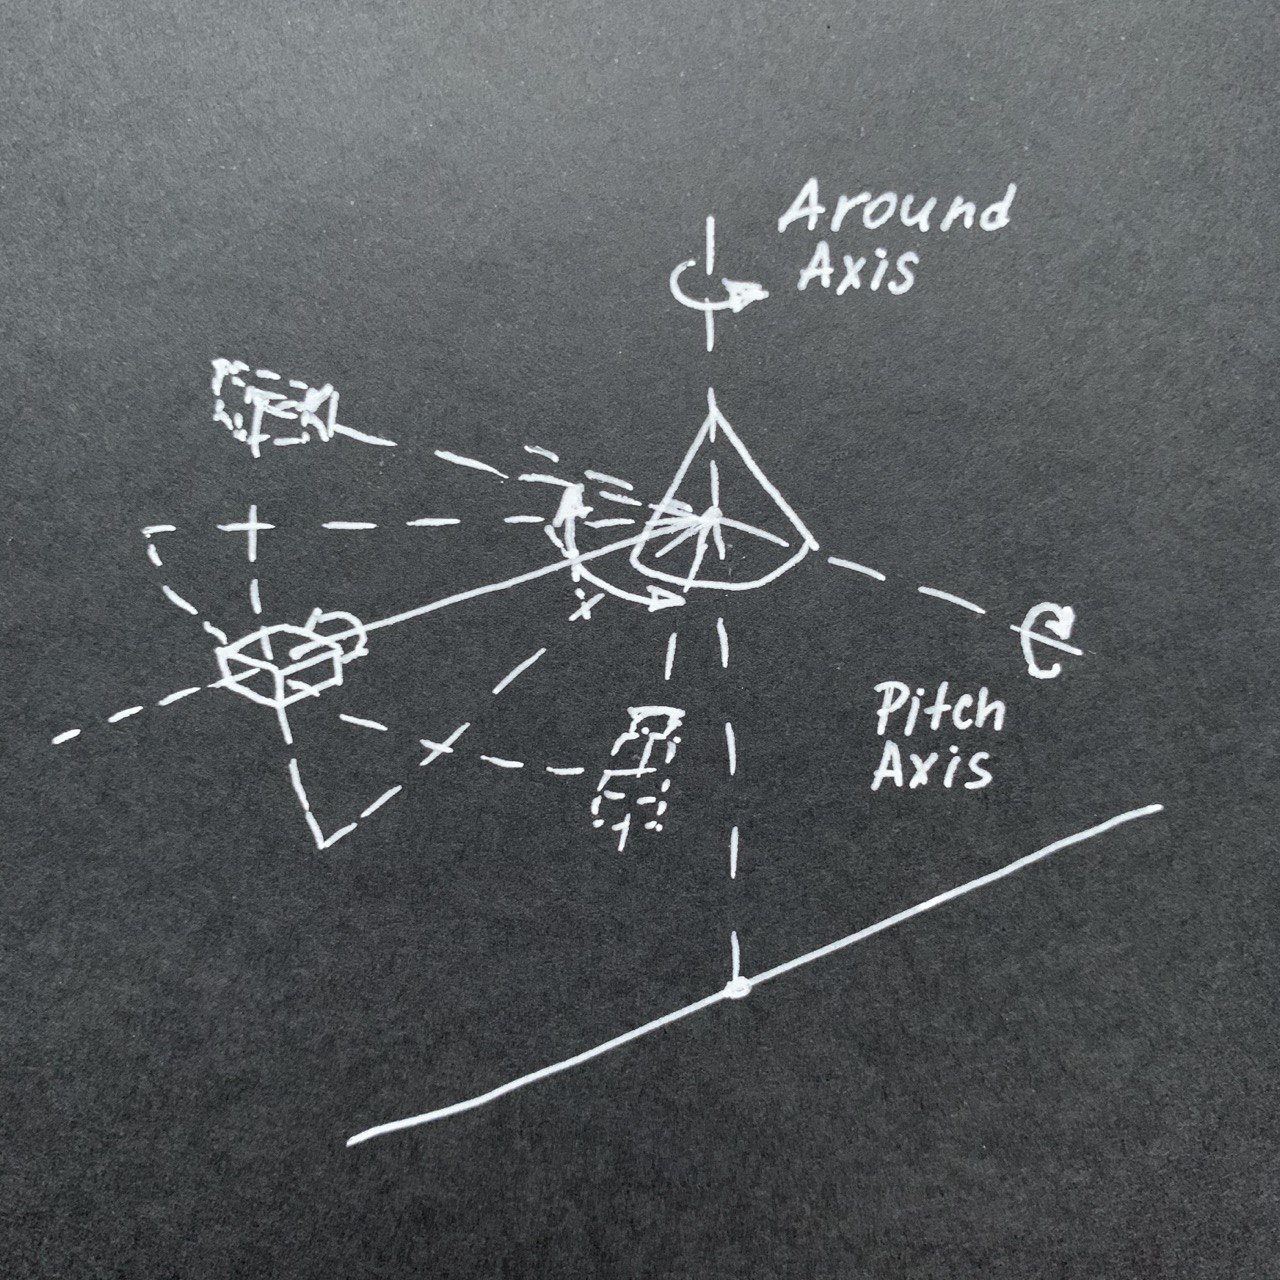 Around
Axis
Pitch
Axis